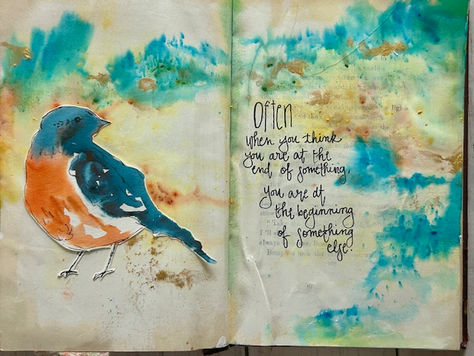 Often
When you think
you are at the
end of something,
you are at
the beginning
of something
else.